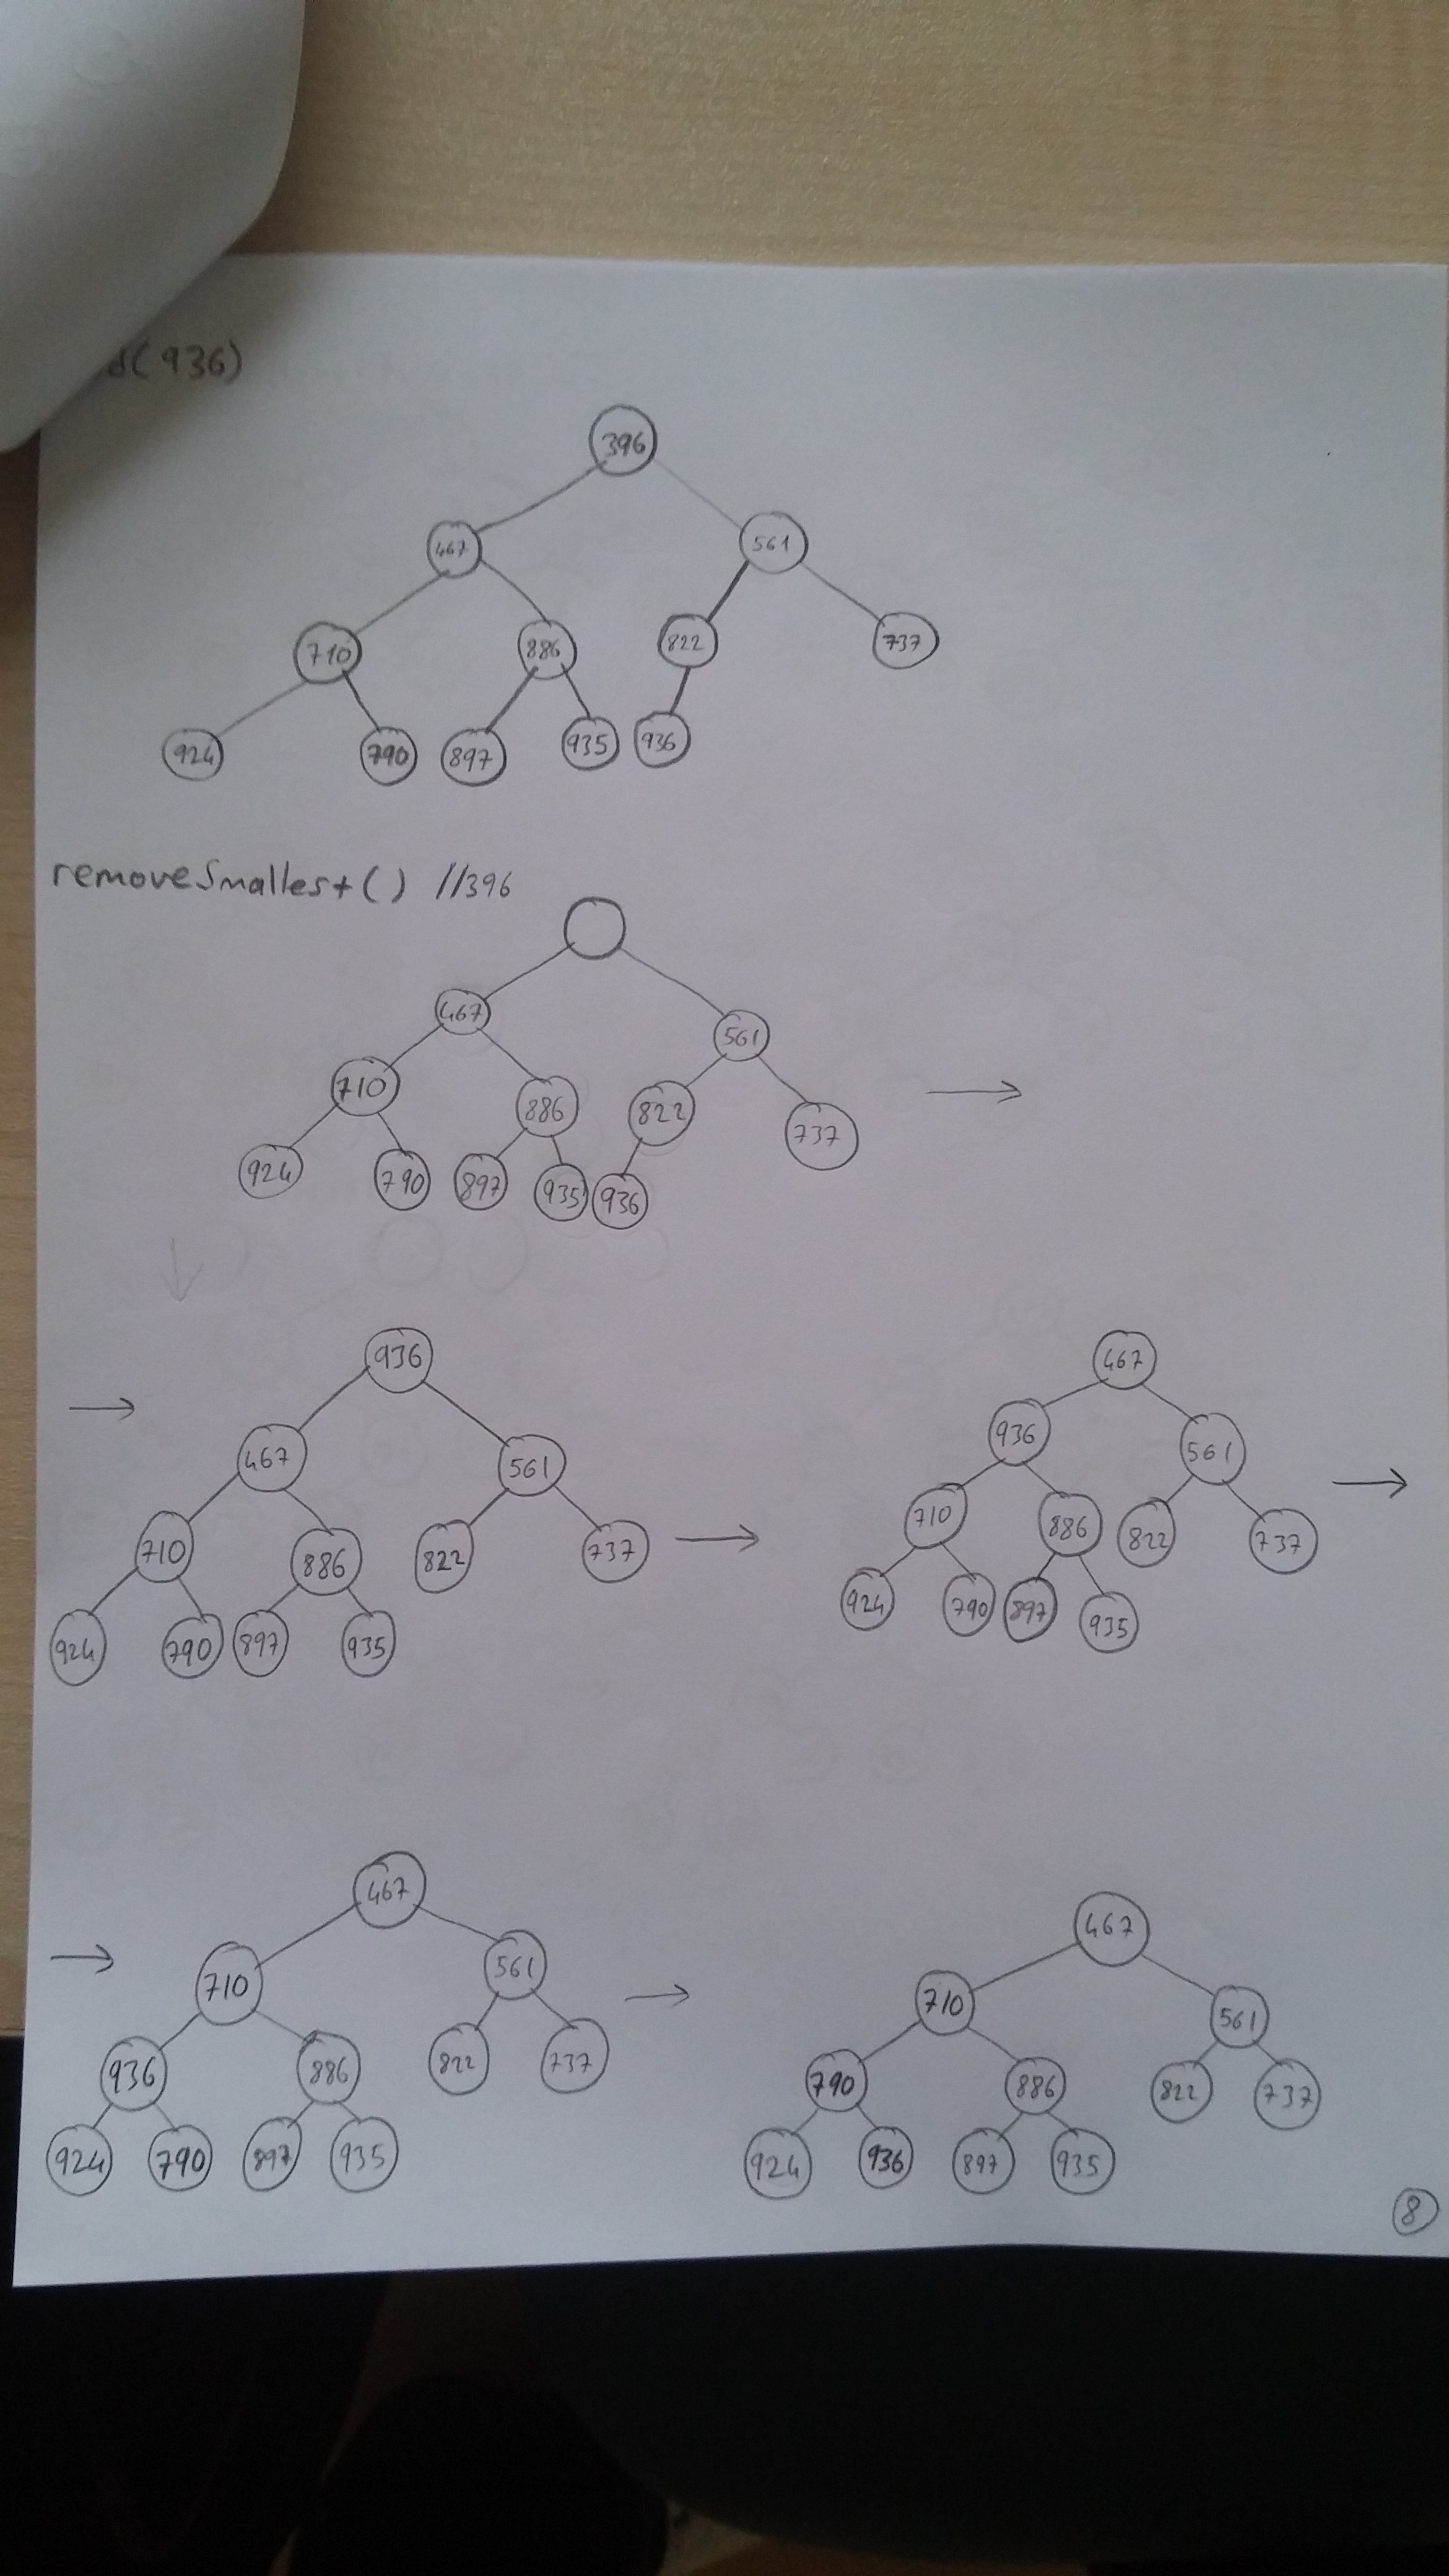 d(936)
396
467 561
710 886 822 737
924 790 897 935 936
removeSmallest() //396
467 561
710 886 822 737
924 790 897 935 936
936
467 561
710 886 822 737
924 790 897 935
467
936 561
710 886 822 737
924 790 897 935
467
710 561
936 886 822 737
924 790 897 935
467
710 561
790 886 822 737
924 936 897 935
8